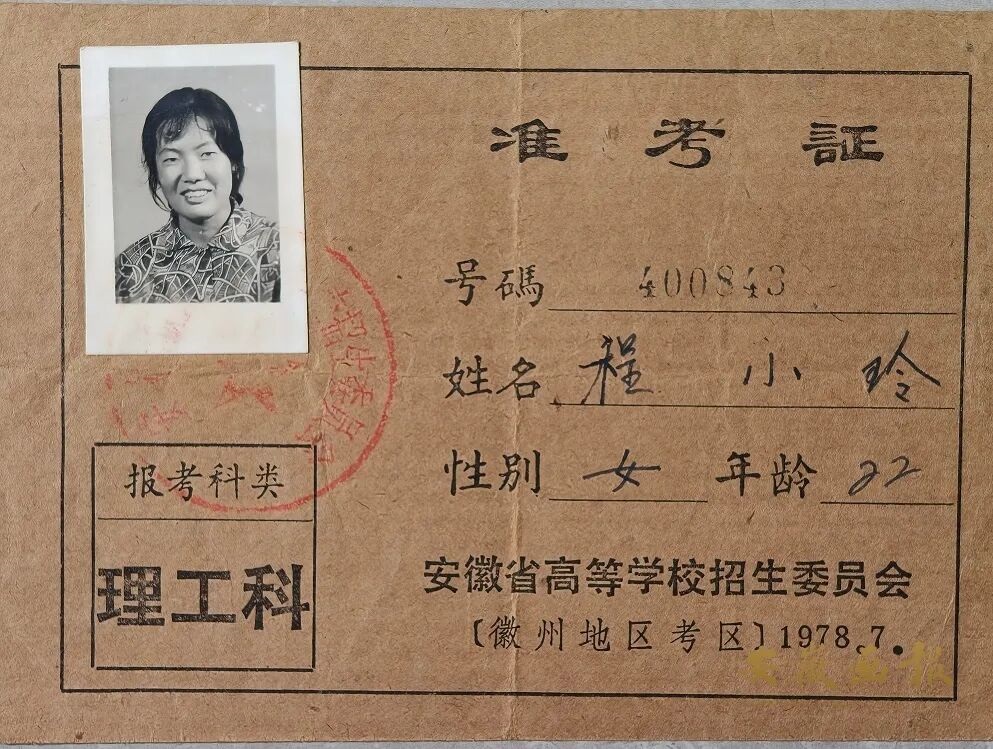 准考証
号碼 400843
姓名 程小玲
性别 女 年龄 22
报考科类
理工科
安徽省高等学校招生委员会
〔徽州地区考区〕1978.7.
安徽画报